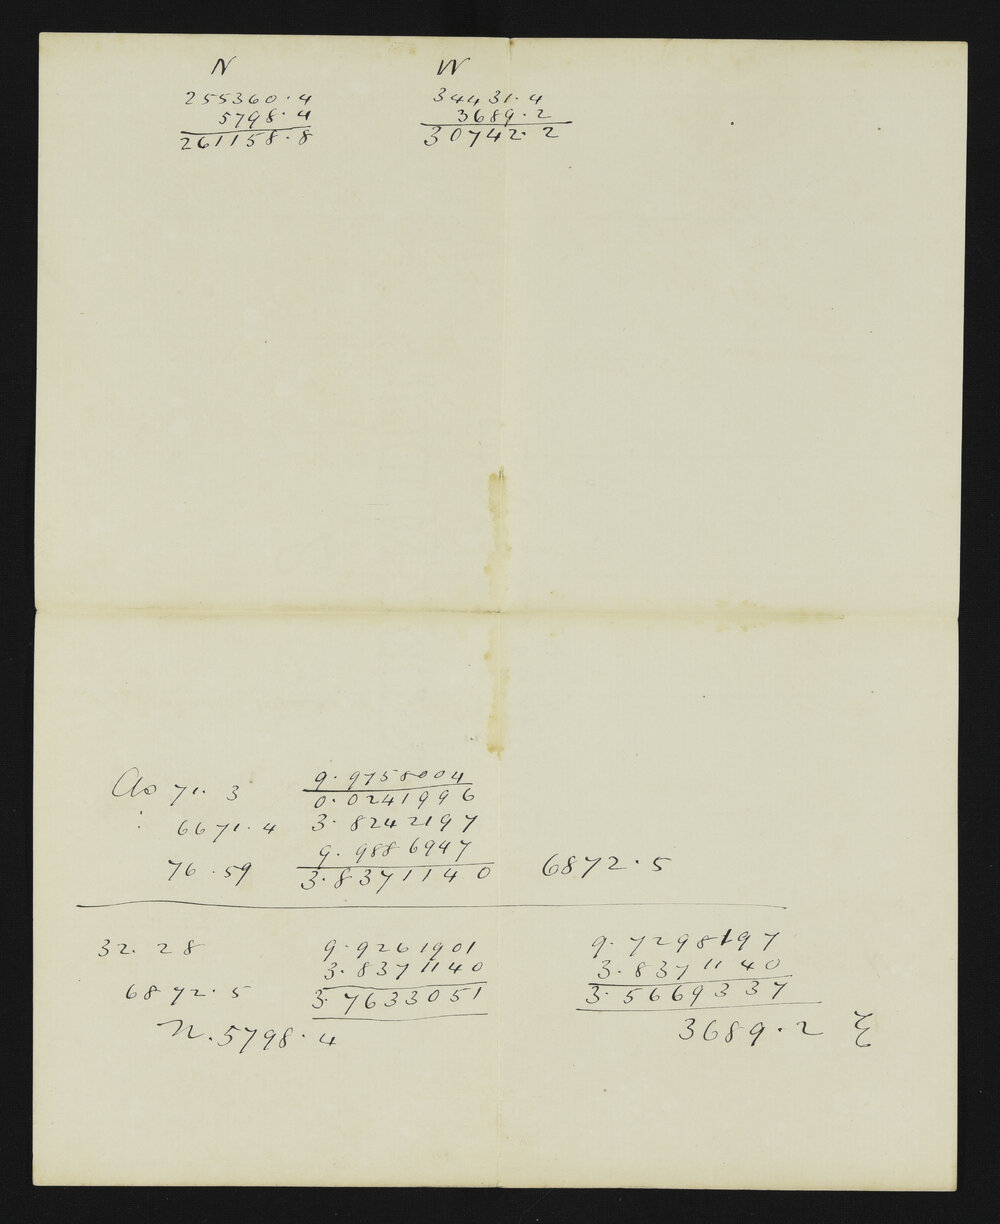 N W
255360.4 34431.4
5798.4 3689.2
261158.8 30742.2
71.3 9.9758004
0.0241996
: 6671.4 3.8242197
76.59 9.9886947
3.8371140 6872.5
32.28 9.9261901 9.7298197
3.8371140 3.8371140
6872.5 3.7633051 3.5669337
N.5798.4 3689.2 E